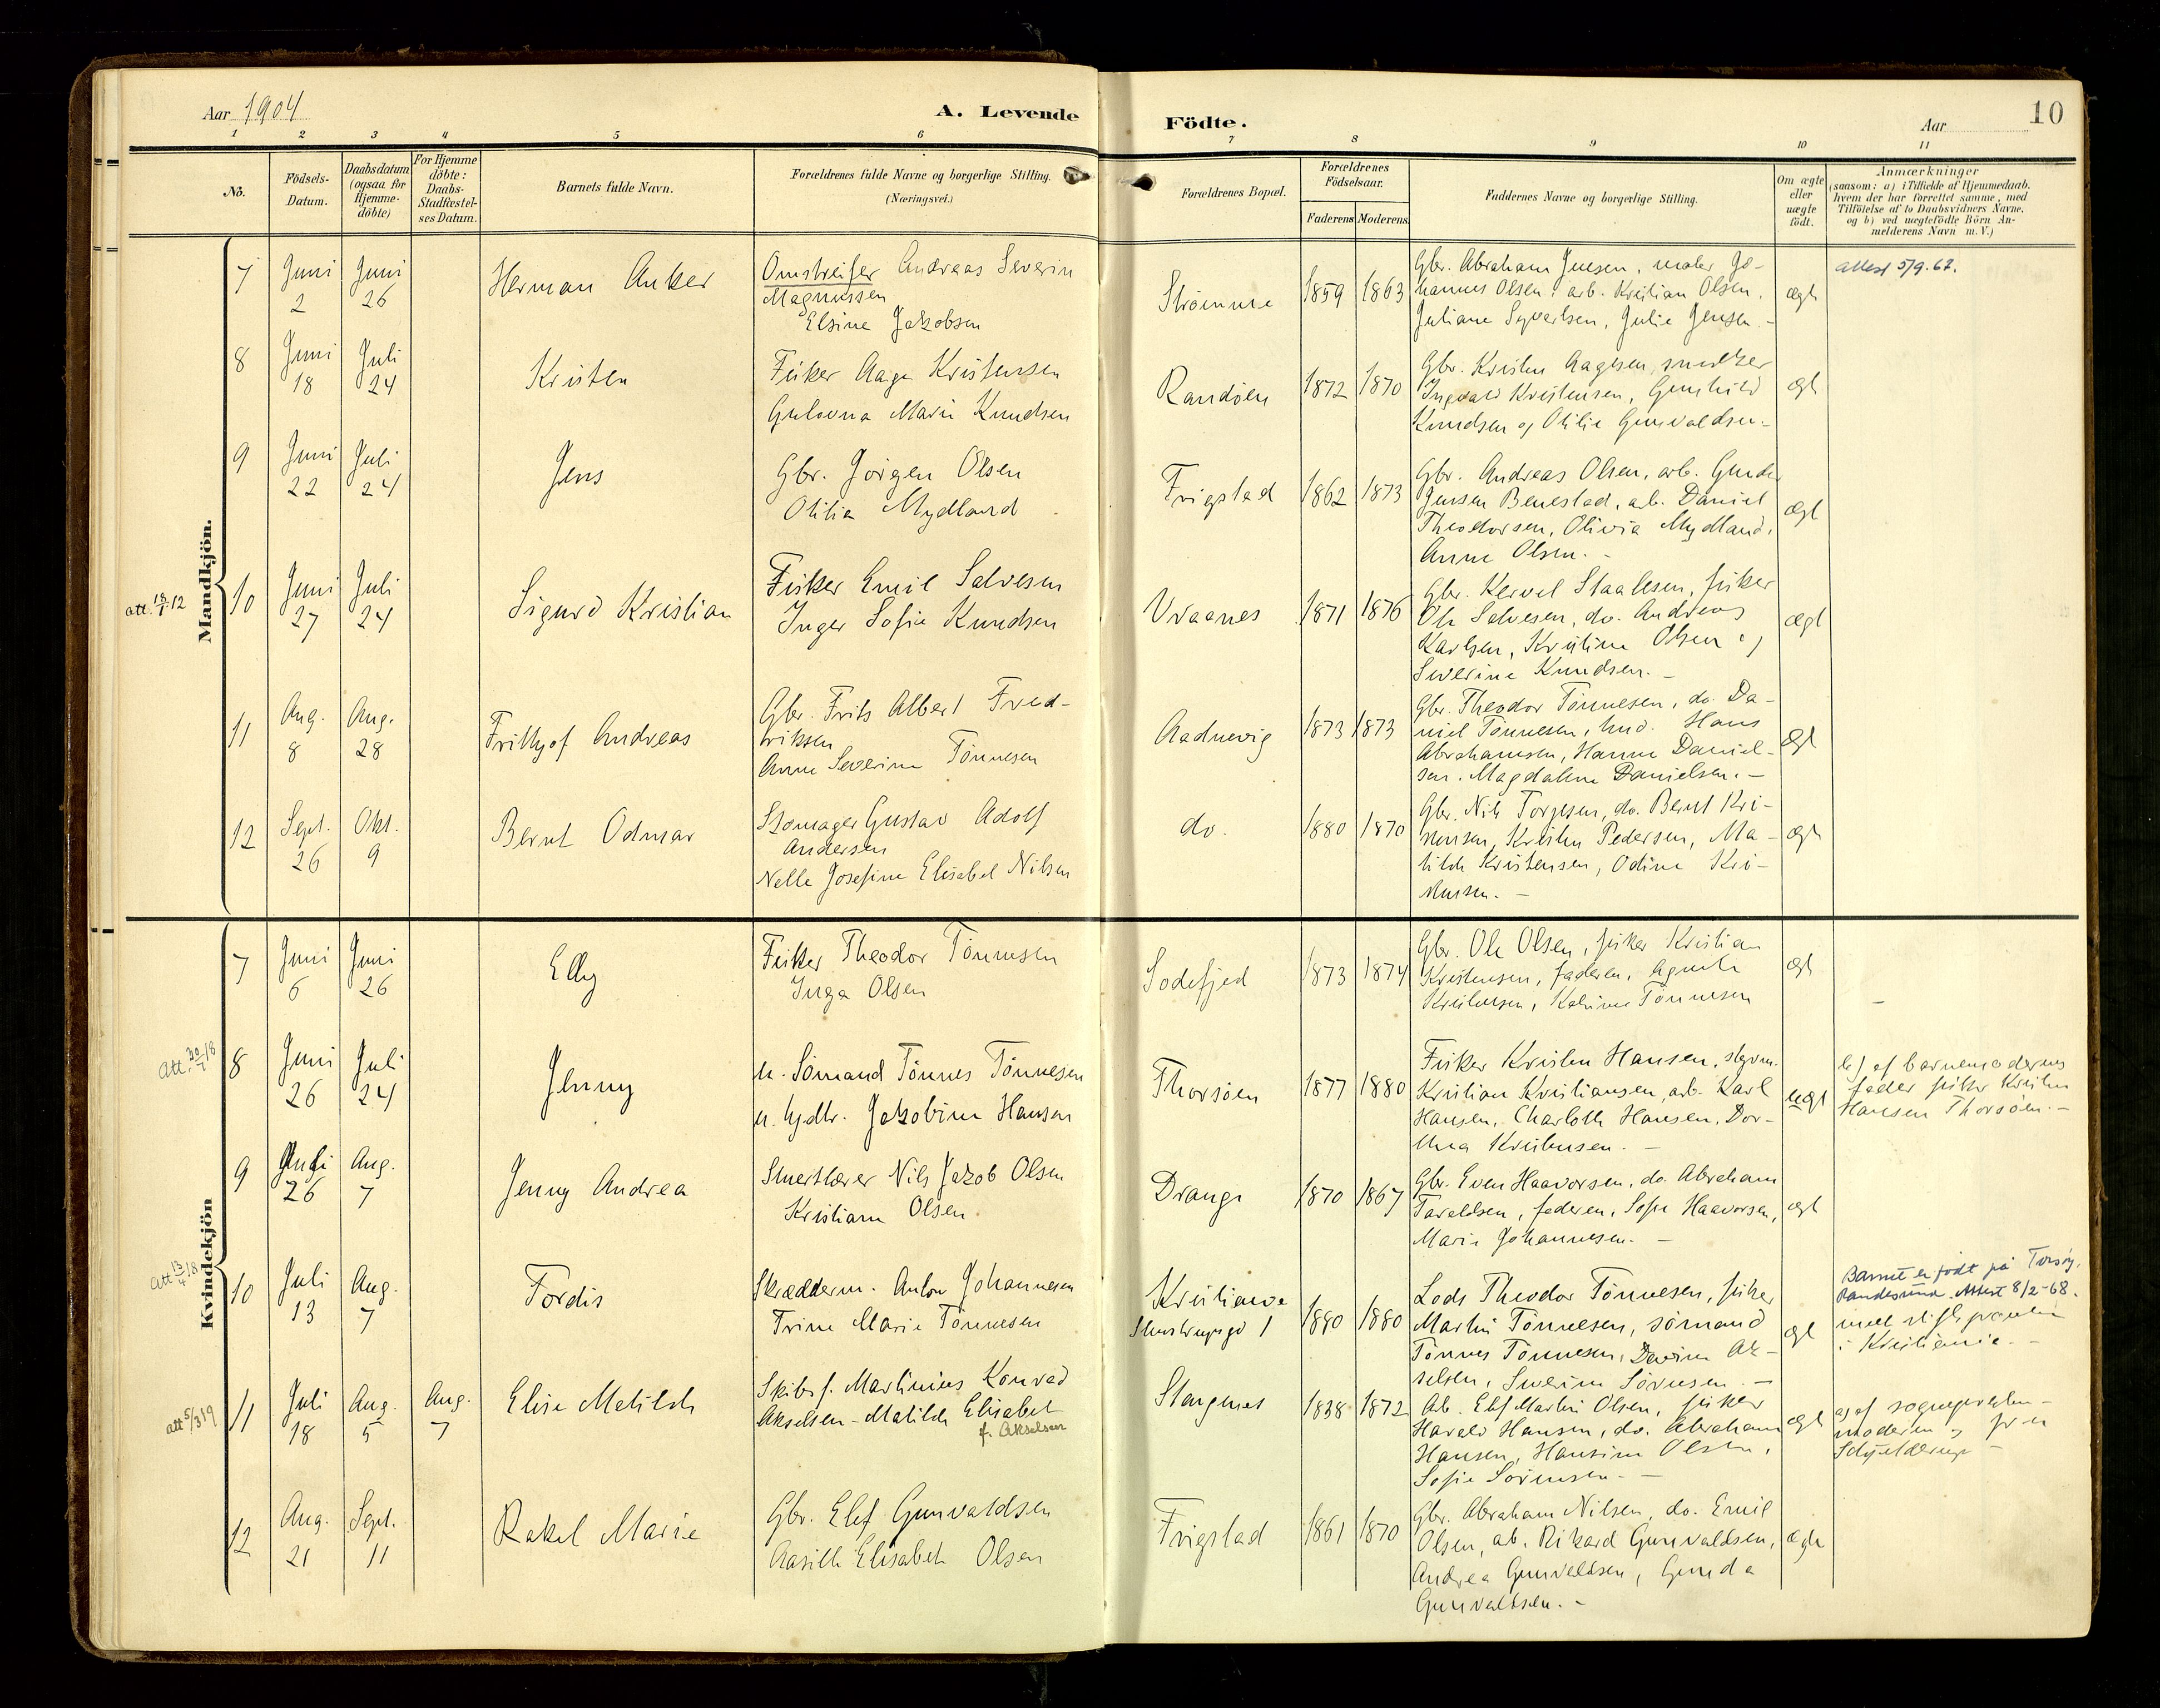 Aar 1904
A. Levende
Födte.
Aar
10
1 2 3 4 5 6 7 8 9 10 11
No.
Födsels-
Datum.
Daabsdatum
(ogsaa for
Hjemme-
döbte)
For Hjemme
döbte:
Daabs-
Stadfæstel-
ses Datum.
Barnets fulde Navn.
Forældrenes fulde Navne og borgerlige Stilling.
(Næringsvei.)
Forældrenes Bopæl.
Forældrenes
Födselsaar.
Faderens Moderens
Faddernes Navne og borgerlige Stilling.
Om ægte
eller
uægte
födt.
Anmærkninger
(saasom: a) i Tilfælde af Hjemmedaab,
hvem der har forrettet samme, med
Tilföielse af to Daabsvidners Navne,
og b) ved uægtefödte Börn An-
melderens Navn m. V.)
Mandkjön.
7
Juni
2
Juni
26
Herman Anker
Omstreifer Andreas Severin
Magnussen
Elsine Jakobsen
Strømme
1859
1863
Gbr. Abraham Jensen, maler Jo-
hannes Olsen, arb. Kristian Olsen,
Juliane Syvertsen, Julie Jensen.-
ægt
Attest 5/9.67.
8
Juni
18
Juli
24
Kristen
Fisker Aage Kristensen
Gulovna Marie Knudsen
Randøen
1872
1870
Gbr. Kristen Aagesen, snedker
Ingvald Kristensen, Gunhild
Knudsen og Otilie Gunvaldsen-
ægt
9
Juni
22
Juli
24
Jens
Gbr. Jörgen Olsen
Otilia Mydland
Frigstad
1862
1873
Gbr. Andreas Olsen, arb. Gunder
Jensen Benestad, arb. Daniel
Theodorsen, Olivia Mydland,
Anne Olsen.-
ægt
att. 18/1 12
10
Juni
27
Juli
24
Sigurd Kristian
Fisker Emil Salvesen
Inger Sofie Knudsen
Vraanes
1871
1876
Gbr. Kervel Staalesen, fisker
Ole Salvesen, do. Andreas
Karlsen, Kristine Olsen og
Severine Knudsen.-
ægt
11
Aug.
8
Aug.
28
Frithjof Andreas
Gbr. Frits Albert Fred-
riksen
Anne Severine Tönnesen
Aadnevig
1873
1873
Gbr. Theodor Tönnesen, do. Da-
niel Tönnesen, Hans
Abrahamsen, Hanne Daniel-
sen, Magdalene Danielsen.-
ægt
12
Sept.
26
Okt.
9
Bernt Odmar
Skomager Gustav Adolf
Andersen
Nelle Josefine Elisabet Nilsen
do.
1880
1870
Gbr. Nils Torjesen, do. Bernt Kri-
stensen, Kristen Pedersen, Ma-
tilde Kristensen, Odine Kri-
stensen.-
ægt
Kvindekjön
7
Juni
6
Juni
26
Elly
Fisker Theodor Tönnesen
Inga Olsen
Sodefjed
1873
1874
Gbr. Ole Olsen, fisker Kristian
Kristensen, faderen, Agnete
Kristensen, Katrine Tönnesen
ægt
-
Att. 30/1 18
8
Juni
26
Juli
24
Jenny
u. Sömand Tönnes Tönnesen
u. Gdtr. Jakobine Hansen
Thorsöen
1877
1880
Fisker Kristen Hansen, styrm.
Kristian Kristiansen, arb. Karl
Hansen, Charlotte Hansen, Dor-
thea Kristensen.-
uægt
b) af barnemoderens
fader fisker Kristen
Hansen Thorsöen.-
9
Juli
26
Aug.
7
Jenny Andrea
Smertlærer Nils Jakob Olsen
Kristiane Olsen
Drange
1870
1867
Gbr. Even Haavorsen, do. Abraham
Taraldsen, faderen, Sofie Haavorsen,
Marie Johannesen.-
ægt
Att 13/4 18
10
Juli
13
Aug.
7
Tordis
Skrædderm. Anton Johannesen
Trine Marie Tönnesen
Kristiania
1
1880
1880
Lods Theodor Tönnesen, fisker
Martin Tönnesen, sömand
Tönnes Tönnesen, Davine Ak-
selsen, Severine Sörensen.-
ægt
Barnet er født på Torsøy,
Randesund. Attest 8/2-68.
i Kristiania.-
att 5/3 19
11
Juli
18
Aug.
5
Aug.
7
Elise Matilde
Skibsf. Martinius Konrad
Akselsen - Matilde Elisabet
f. Akselsen
Stangenes
1838
1872
Ab. Elef Martin Olsen, fisker
Harald Hansen, do. Abraham
Hansen, Hansine Olsen,
Sofie Sörensen.-
ægt
a) af sognepresten -
moderen og fru
Schjelderup -
12
Aug.
21
Sept.
11
Rakel Marie
Gbr. Elef Gunvaldsen
Aasille Elisabet Olsen
Frigstad
1861
1870
Gbr. Abraham Nilsen, do. Emil
Olsen, ab. Rikard Gunvaldsen,
Andrea Gunvaldsen, Gunda
Gunvaldsen.-
ægte